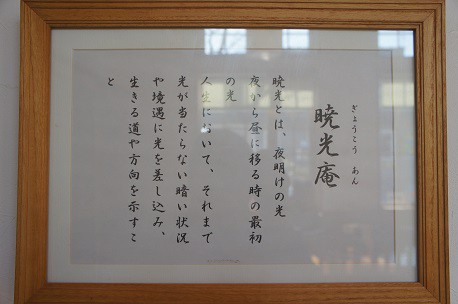 ぎょうこう あん
暁光庵
暁光とは、夜明けの光
夜から昼に移る時の最初
の光
人生において、それまで
光が当たらない暗い状況
や境遇に光を差し込み、
生きる道や方向を示すこ
と